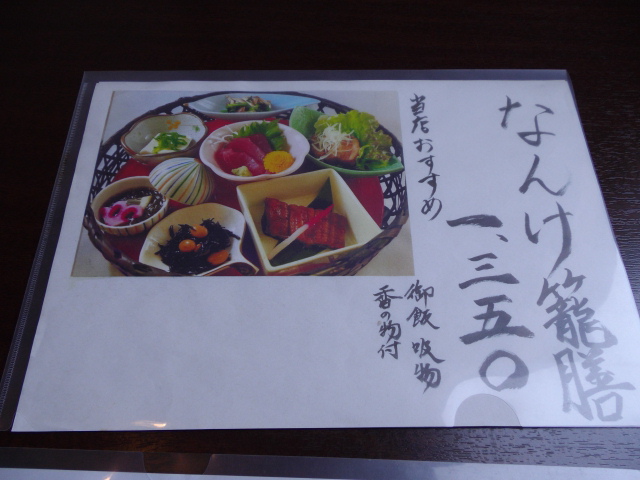 なんけ籠膳
一、三五〇
当店おすすめ
御飯 吸物
香の物付